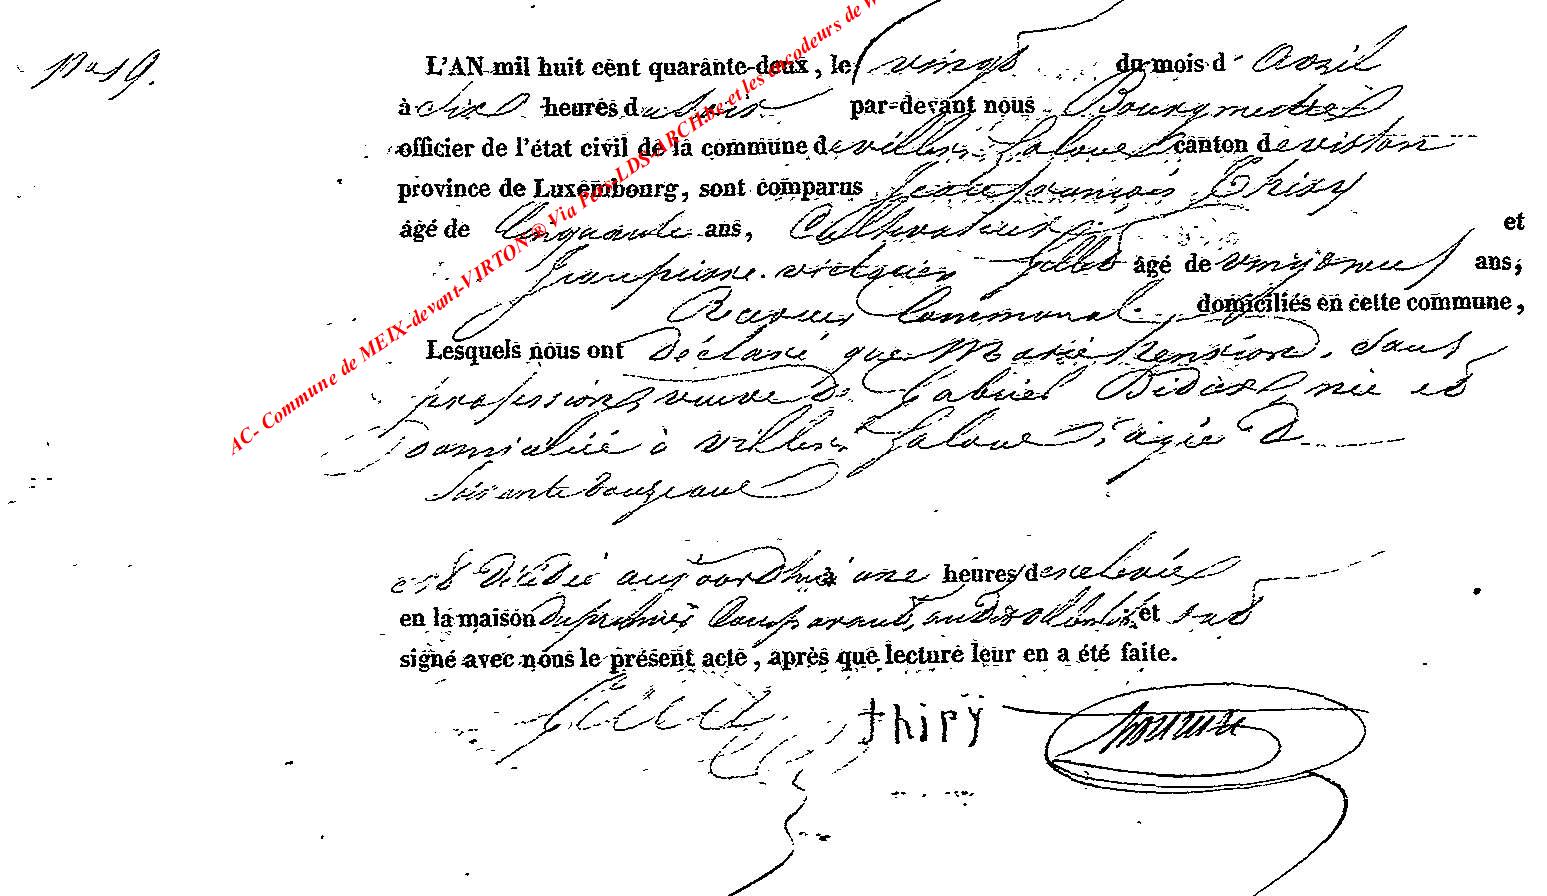 N° 19.
L'AN mil huit cent quarante-deux, le vingt du mois d'Avril
à six heures du soir par-devant nous Bourgmestre
officier de l'état civil de la commune de villers Laloue canton de virton
province de Luxembourg, sont comparus Jean françois Thiry
âgé de Cinquante ans, Cultivateur et
Jean pierre victorien âgé de vingt neuf ans,
Receveur Communal. domiciliés en cette commune,
Lesquels nous ont Déclaré que Marie Henrion, sans
profession, veuve de Gabriel Didier, née et
Domiciliée à villers Laloue, agée de
soixante douze ans
est Décédée aujourd'hui à une heures de relevée
en la maison du premier Comparant, audit villers et ont
signé avec nous le présent acte, après que lecture leur en a été faite.
thiry
AC- Commune de MEIX-devant-VIRTON ® Via Pers-LDS-ARCH.be et les encodeurs de